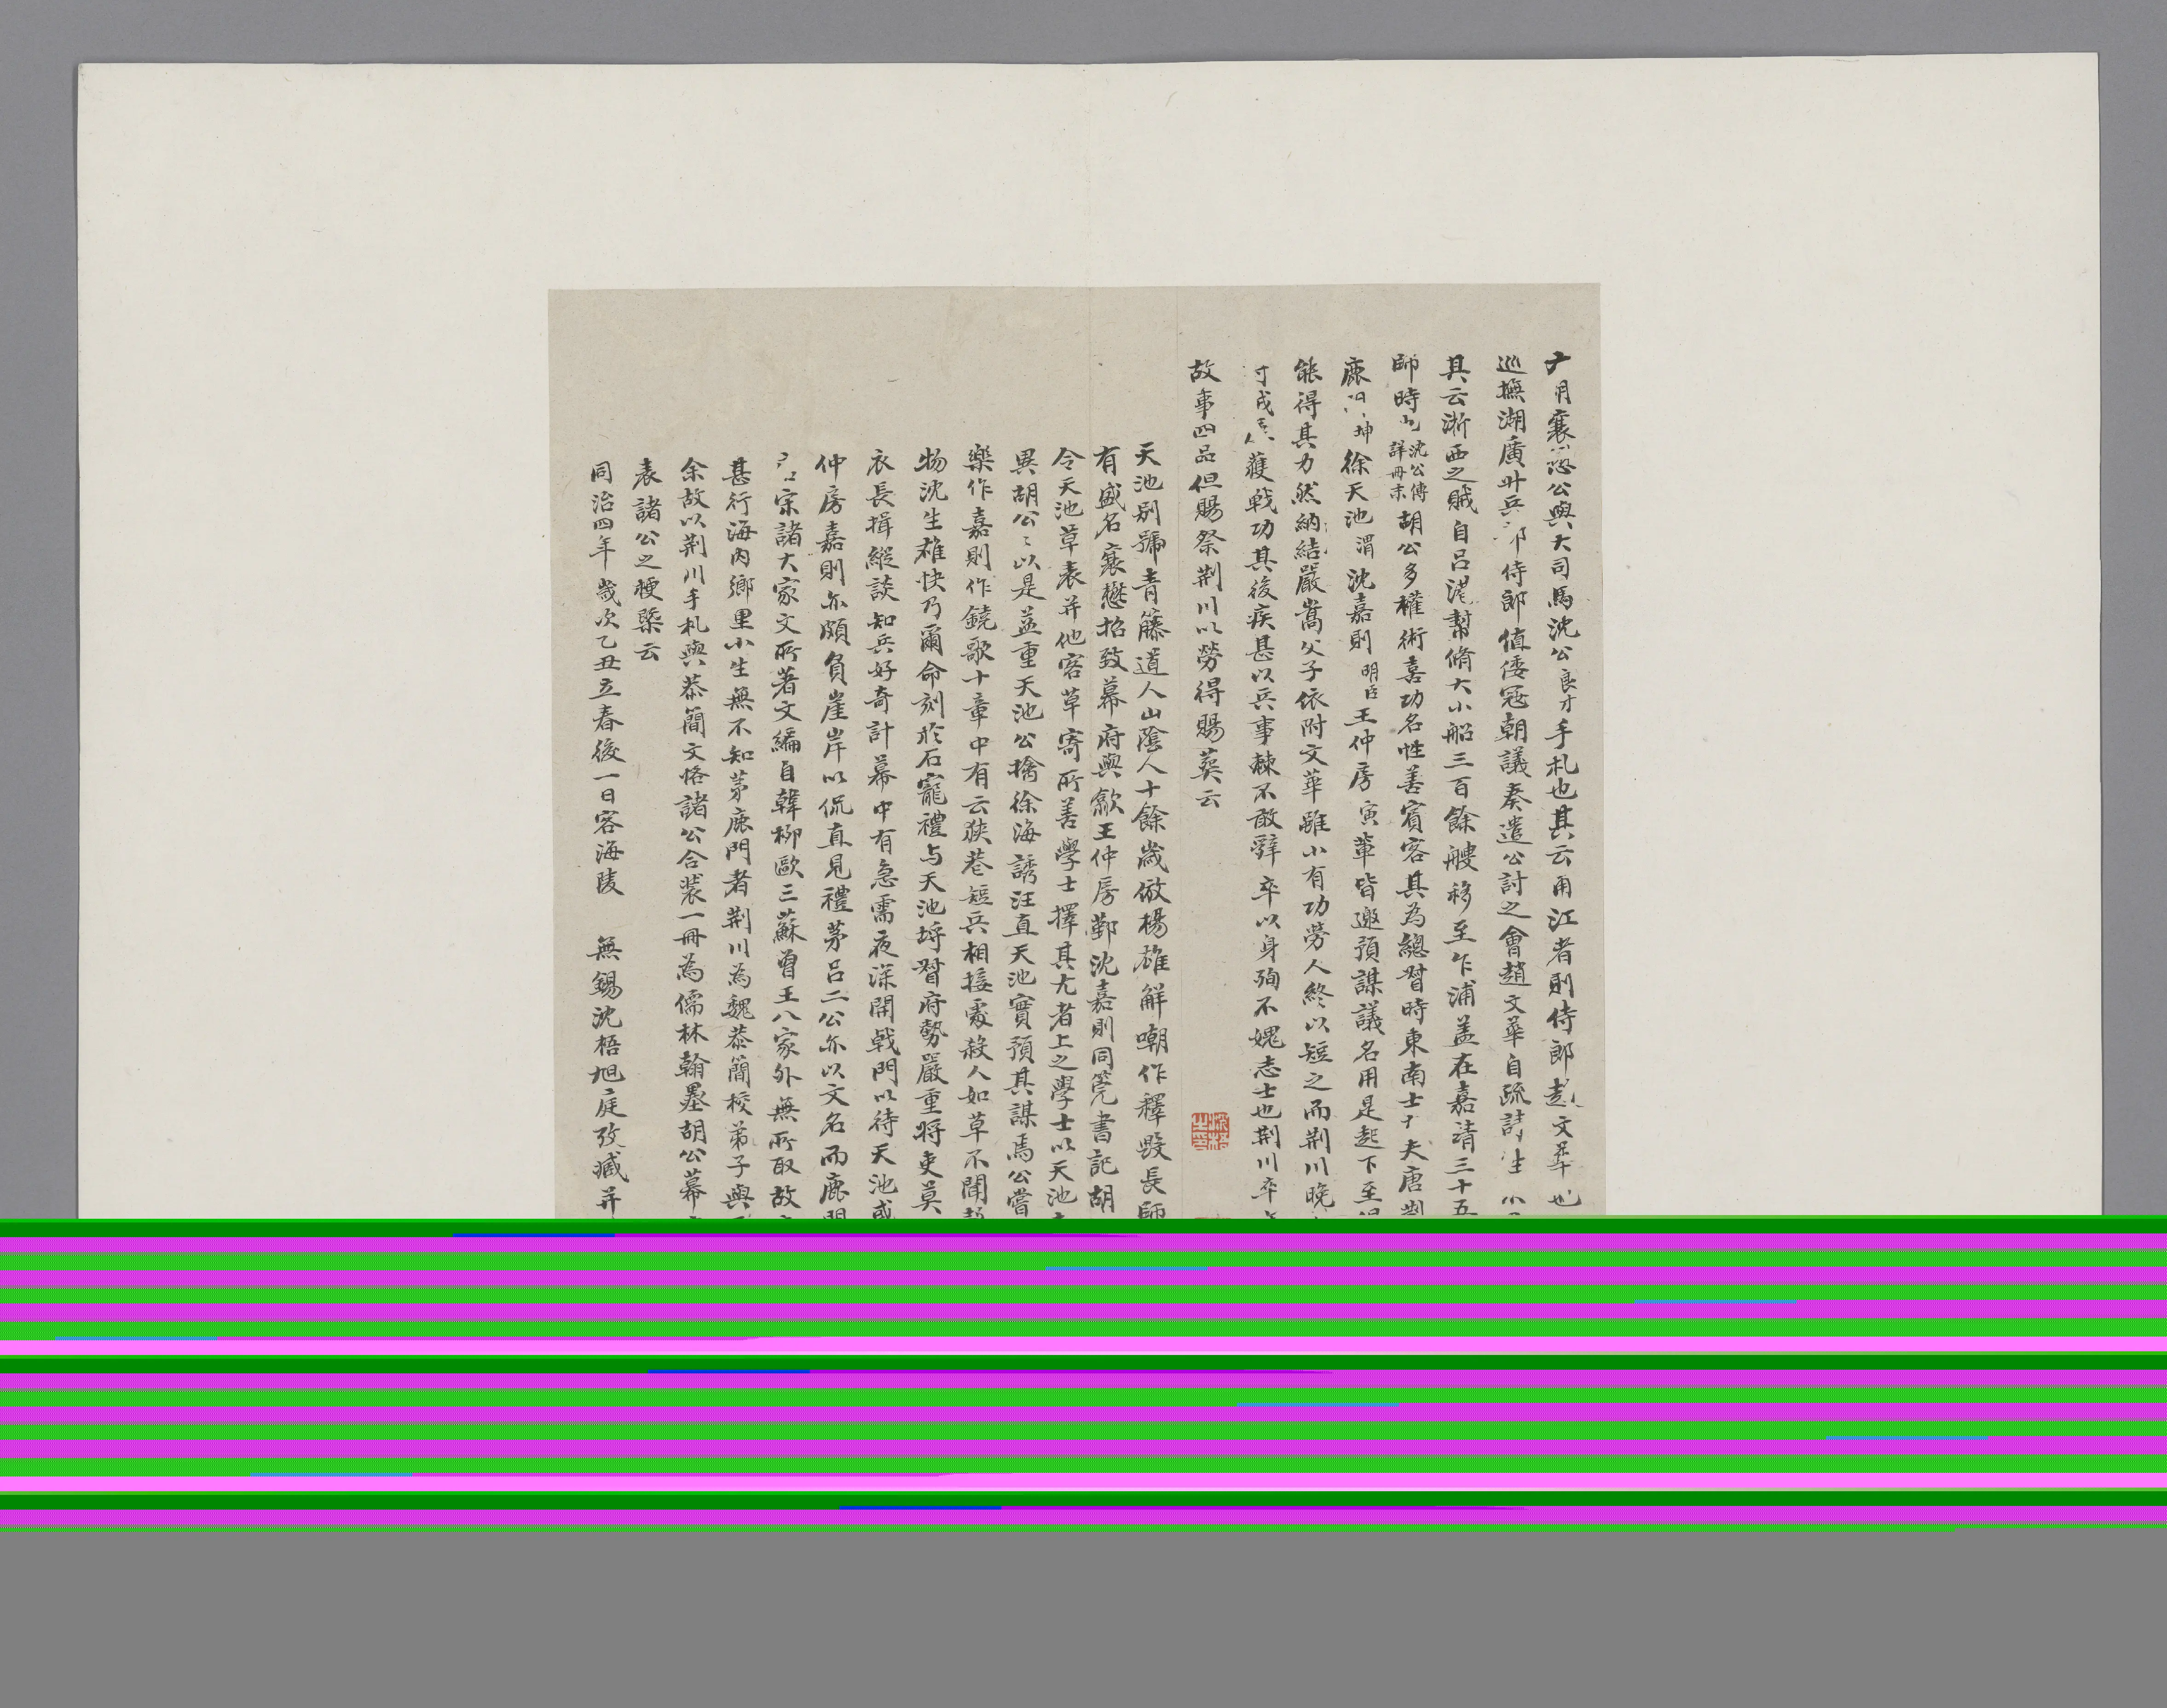 月襄公與大司馬沈公良才手札也其云甬江者則侍郎趙文華也
巡撫湖廣升兵部侍郎值倭寇朝議奏遣公討之會趙文華自疏請
其云浙西之賊自呂港幫脩大小船三百餘艘移至乍浦蓋在嘉靖三十五
師時沈公傳詳冊末胡公多權術喜功名性善賓客其為總督時東南士夫唐荆
鹿坤徐天池渭沈嘉則明臣王仲房寅輩皆邀預謀議名用是起下至
能得其力然納結嚴嵩父子依附文華雖小有功勞人終以短之而荆川晚
獲戰功其後疾甚以兵事棘不敢辭卒以身殉不媿志士也荆川卒
故事四品但賜祭荆川以勞得賜葬云
天池別號青籐道人山陰人十餘歲倣楊雄解嘲作釋毀長師
有盛名襄懋招致幕府與歙王仲房鄞沈嘉則同筦書記胡
令天池草表并他客草寄所善學士擇其尤者上之學士以天池
異胡公〻以是益重天池公擒徐海誘汪直天池實預其謀焉公嘗
樂作嘉則作鐃歌十章中有云狹巷短兵相接處殺人如草不聞
物沈生雄快乃爾命刻於石寵禮与天池埒督府勢嚴重將吏莫
衣長揖縱談知兵好奇計幕中有急需夜深開戟門以待天池或
仲房嘉則亦頗負崖岸以侃直見禮茅呂二公亦以文名而鹿門
宋諸大家文所著文編自韓柳歐三蘇曾王八家外無所取故
甚行海內鄉里小生無不知茅鹿門者荆川為魏恭簡校弟子與
余故以荆川手札與恭簡文恪諸公合裝一冊為儒林翰墨胡公幕
表諸公之梗槩云
同治四年歲次乙丑立春後一日客海陵 無錫沈梧旭庭攷藏并